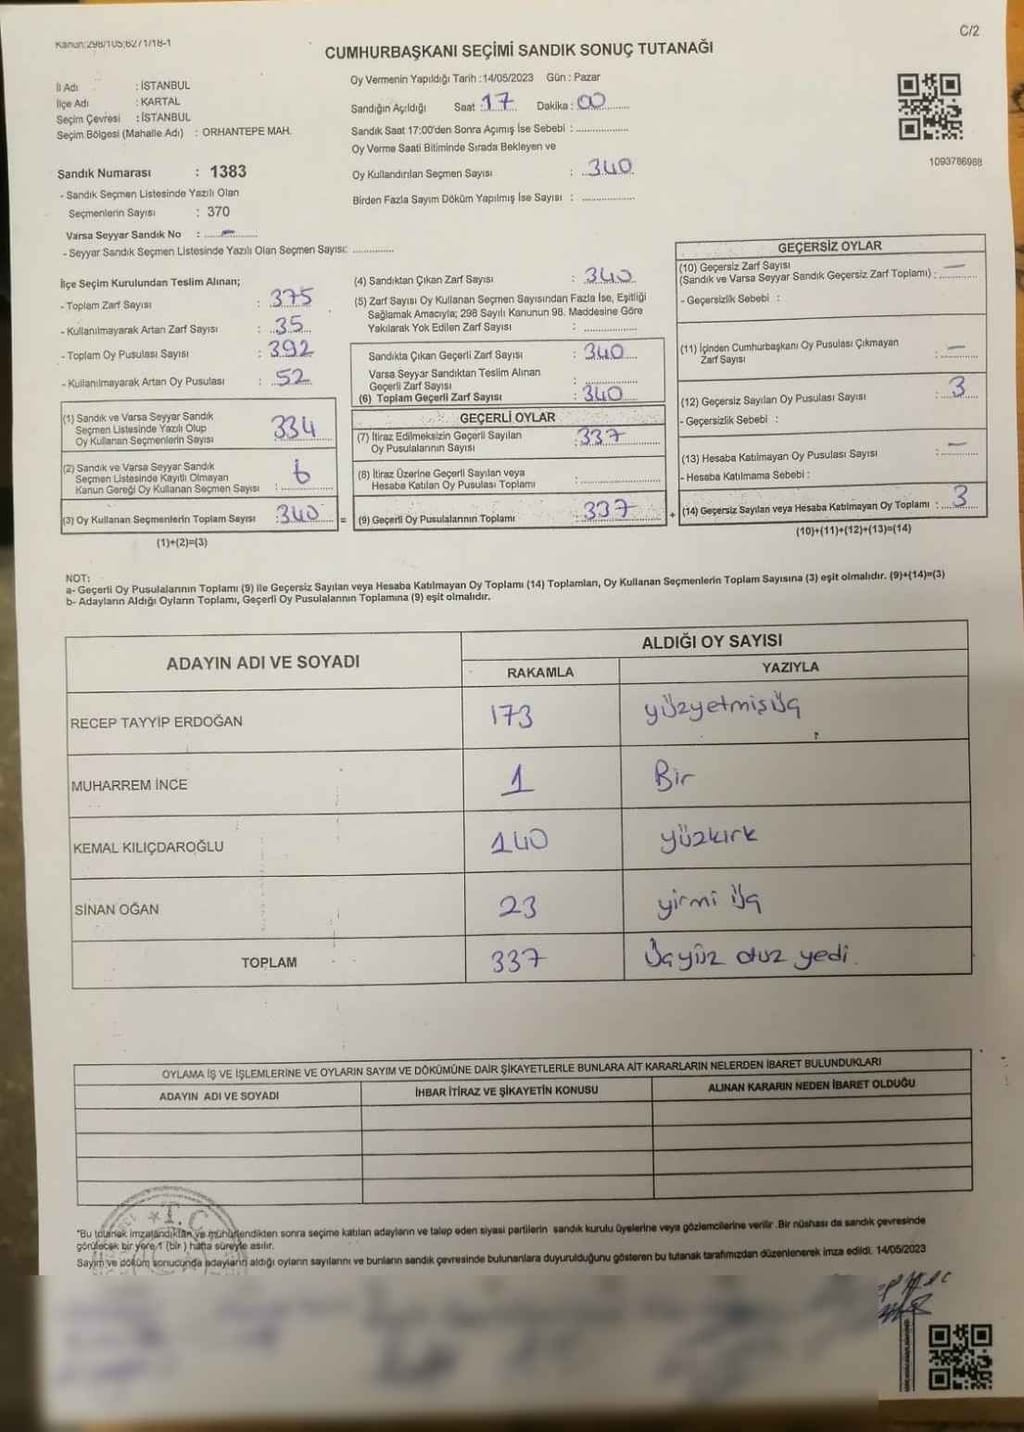 Kanun:298/105;6271/18-1
C/2
CUMHURBAŞKANI SEÇİMİ SANDIK SONUÇ TUTANAĞI
İl Adı : İSTANBUL
İlçe Adı : KARTAL
Seçim Çevresi : İSTANBUL
Seçim Bölgesi (Mahalle Adı) : ORHANTEPE MAH.
Oy Vermenin Yapıldığı Tarih :14/05/2023 Gün : Pazar
Sandığın Açıldığı Saat :17 Dakika :00
Sandık Saat 17:00'den Sonra Açımış İse Sebebi :
Oy Verme Saati Bitiminde Sırada Bekleyen ve
Oy Kullandırılan Seçmen Sayısı : 340
Birden Fazla Sayım Döküm Yapılmış İse Sayısı :
1093786988
Sandık Numarası : 1383
- Sandık Seçmen Listesinde Yazılı Olan
Seçmenlerin Sayısı : 370
Varsa Seyyar Sandık No : -
- Seyyar Sandık Seçmen Listesinde Yazılı Olan Seçmen Sayısı:
İlçe Seçim Kurulundan Teslim Alınan;
- Toplam Zarf Sayısı : 375
- Kullanılmayarak Artan Zarf Sayısı : 35
- Toplam Oy Pusulası Sayısı : 392
- Kullanılmayarak Artan Oy Pusulası : 52
(1) Sandık ve Varsa Seyyar Sandık
Seçmen Listesinde Yazılı Olup
Oy Kullanan Seçmenlerin Sayısı 334
(2) Sandık ve Varsa Seyyar Sandık
Seçmen Listesinde Kayıtlı Olmayan
Kanun Gereği Oy Kullanan Seçmen Sayısı : 6
(3) Oy Kullanan Seçmenlerin Toplam Sayısı :340
(1)+(2)=(3)
(4) Sandıktan Çıkan Zarf Sayısı : 340
(5) Zarf Sayısı Oy Kullanan Seçmen Sayısından Fazla İse, Eşitliği
Sağlamak Amacıyla; 298 Sayılı Kanunun 98. Maddesine Göre
Yakılarak Yok Edilen Zarf Sayısı :
Sandıkta Çıkan Geçerli Zarf Sayısı : 340
Varsa Seyyar Sandıktan Teslim Alınan
Geçerli Zarf Sayısı :
(6) Toplam Geçerli Zarf Sayısı : 340
GEÇERLİ OYLAR
(7) İtiraz Edilmeksizin Geçerli Sayılan
Oy Pusulalarının Sayısı :337
(8) İtiraz Üzerine Geçerli Sayılan veya
Hesaba Katılan Oy Pusulası Toplamı :
= (9) Geçerli Oy Pusulalarının Toplamı : 337
GEÇERSİZ OYLAR
(10) Geçersiz Zarf Sayısı
(Sandık ve Varsa Seyyar Sandık Geçersiz Zarf Toplamı) : -
- Geçersizlik Sebebi :
(11) İçinden Cumhurbaşkanı Oy Pusulası Çıkmayan
Zarf Sayısı : -
(12) Geçersiz Sayılan Oy Pusulası Sayısı : 3
- Geçersizlik Sebebi :
(13) Hesaba Katılmayan Oy Pusulası Sayısı : -
- Hesaba Katılmama Sebebi :
+ (14) Geçersiz Sayılan veya Hesaba Katılmayan Oy Toplamı : 3
(10)+(11)+(12)+(13)=(14)
NOT:
a- Geçerli Oy Pusulalarının Toplamı (9) ile Geçersiz Sayılan veya Hesaba Katılmayan Oy Toplamı (14) Toplamları, Oy Kullanan Seçmenlerin Toplam Sayısına (3) eşit olmalıdır. (9)+(14)=(3)
b- Adayların Aldığı Oyların Toplamı, Geçerli Oy Pusulalarının Toplamına (9) eşit olmalıdır.
ADAYIN ADI VE SOYADI
ALDIĞI OY SAYISI
RAKAMLA YAZIYLA
RECEP TAYYİP ERDOĞAN 173 yüzyetmişüç
MUHARREM İNCE 1 Bir
KEMAL KILIÇDAROĞLU 140 yüzkırk
SİNAN OĞAN 23 yirmi üç
TOPLAM 337 Üçyüz otuz yedi.
OYLAMA İŞ VE İŞLEMLERİNE VE OYLARIN SAYIM VE DÖKÜMÜNE DAİR ŞİKAYETLERLE BUNLARA AİT KARARLARIN NELERDEN İBARET BULUNDUKLARI
ADAYIN ADI VE SOYADI İHBAR İTİRAZ VE ŞİKAYETİN KONUSU ALINAN KARARIN NEDEN İBARET OLDUĞU
T.C.
*Bu tutanak imzalandıktan ve mühürlendikten sonra seçime katılan adayların ve talep eden siyasi partilerin sandık kurulu üyelerine veya gözlemcilerine verilir .Bir nüshası da sandık çevresinde
görülecek bir yere 1 (bir ) hafta süreyle asılır.
Sayım ve döküm sonucunda adayların aldığı oyların sayılarını ve bunların sandık çevresinde bulunanlara duyurulduğunu gösteren bu tutanak tarafımızdan düzenlenerek imza edildi. 14/05/2023